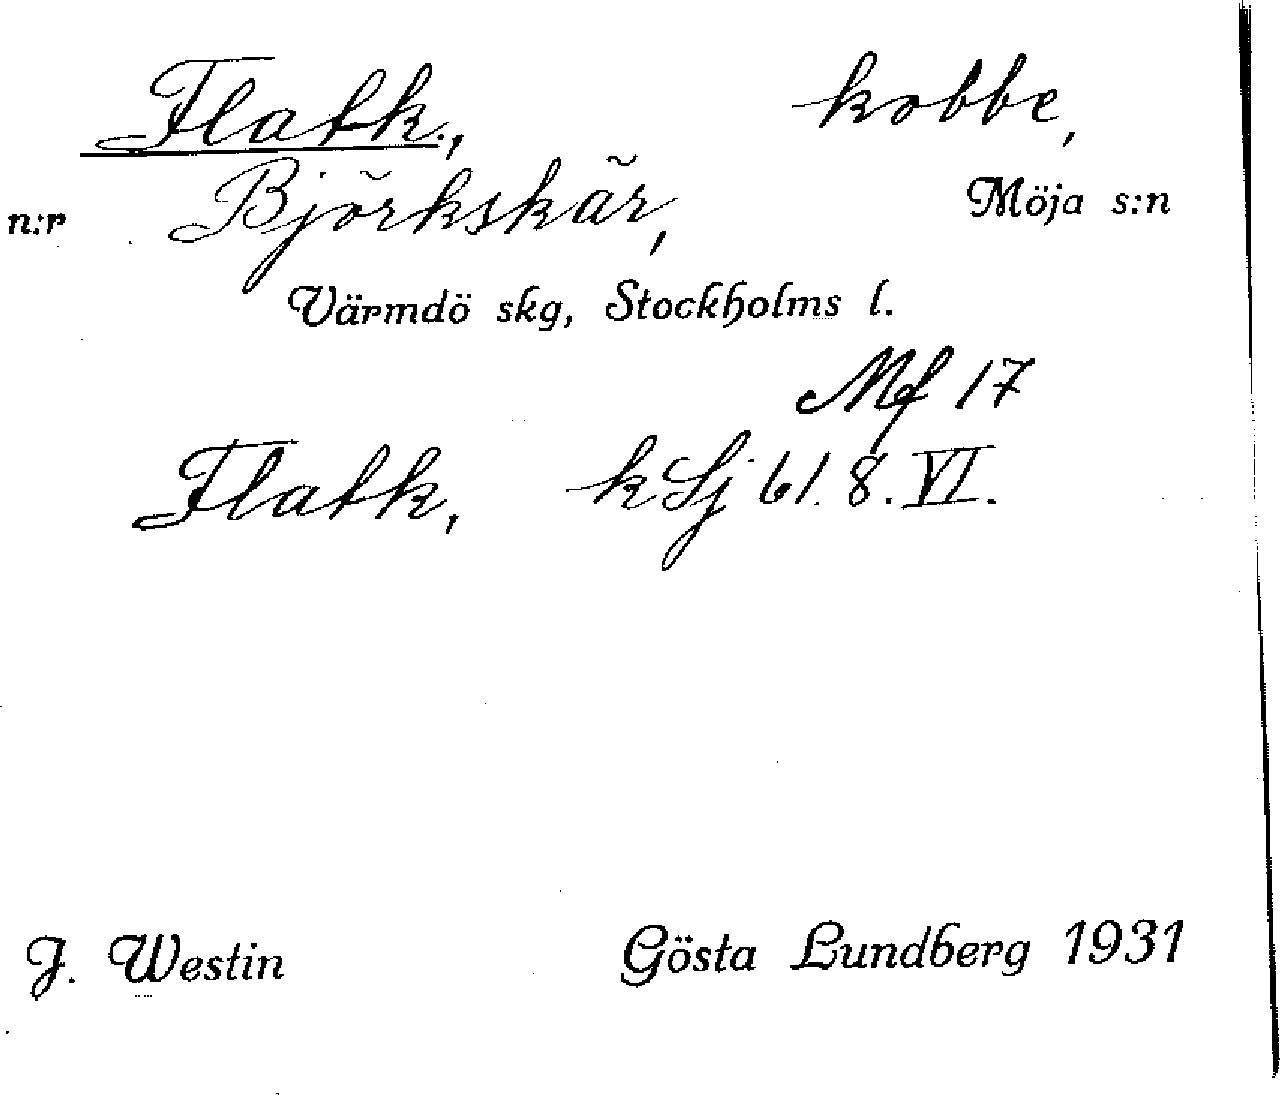 Flatk., kobbe,
n:r Björkskär, Möja s:n
Värmdö skg, Stockholms l.
Mf 17
Flatk, k Sj 61. 8. VI.
J. Westin Gösta Lundberg 1931